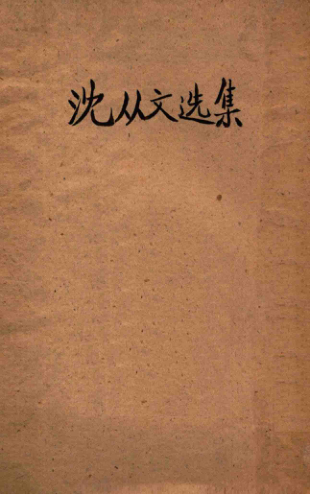 沈从文选集